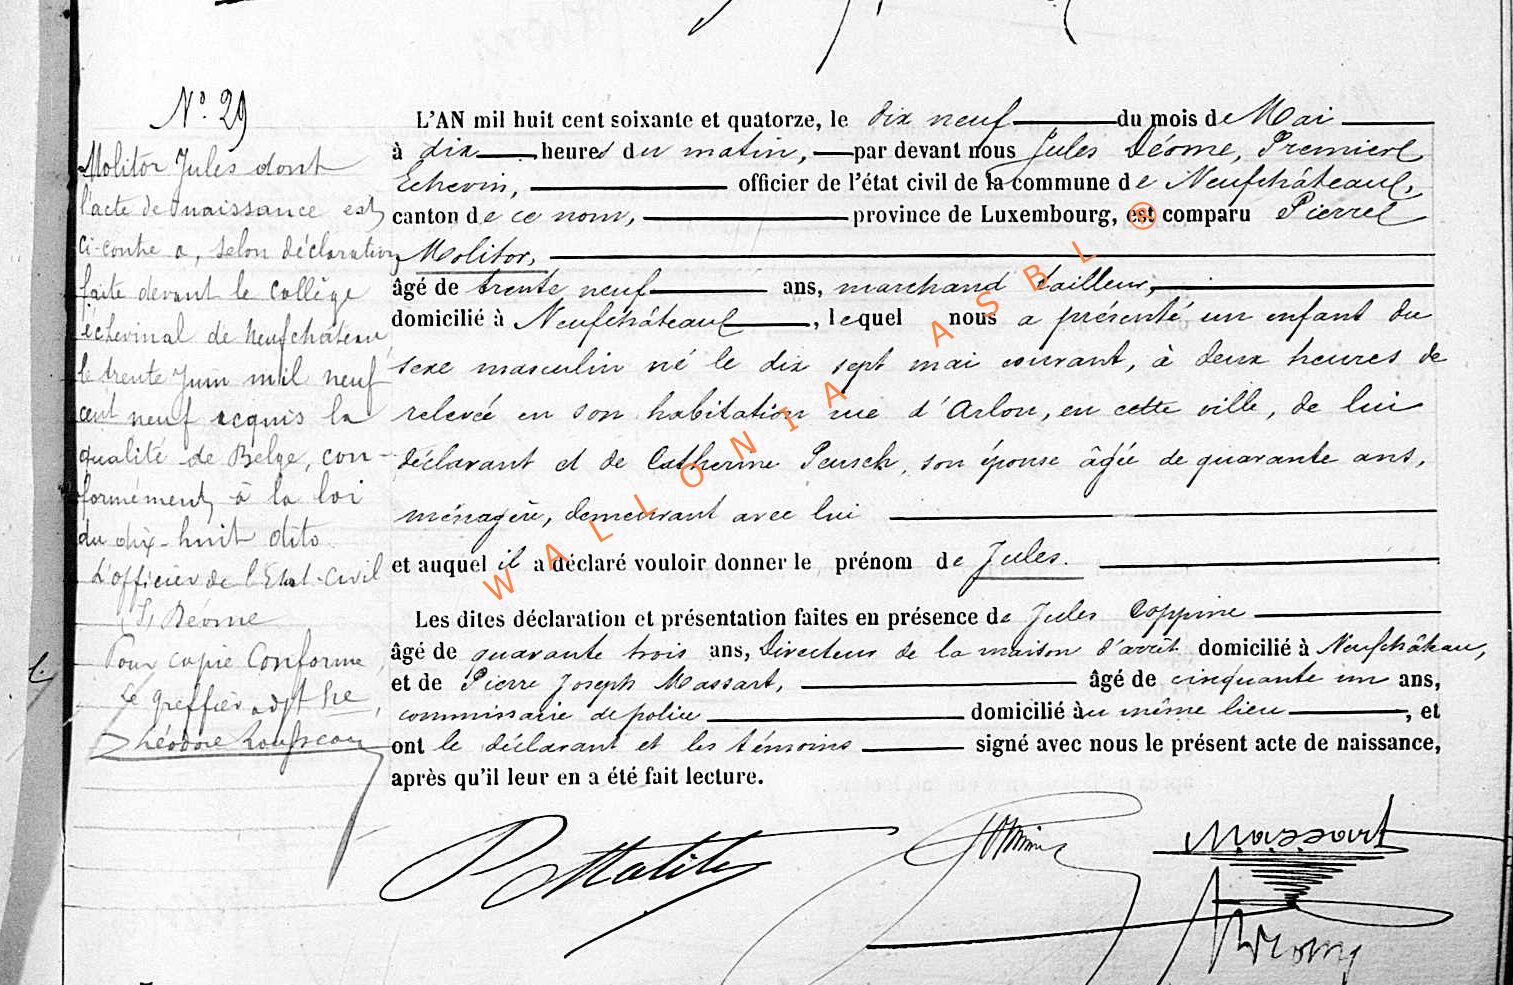 N° 29
Molitor Jules dont
l'acte de naissance est
ci-contre a, selon déclaration
faite devant le collège
échevinal de Neufchâteau
le trente Juin mil neuf
cent neuf acquis la
qualité de Belge, con-
formément à la loi
du dix-huit dito.
L'officier de l'Etat-Civil
Déome
Pour copie Conforme,
Le greffier adjt
Théodore
L'AN mil huit cent soixante et quatorze, le dix neuf du mois de Mai
à dix heures du matin, par devant nous Jules Déome, Premier
Echevin, officier de l'état civil de la commune de Neufchâteau,
canton de ce nom, province de Luxembourg, est comparu Pierre
Molitor,
âgé de trente neuf ans, marchand tailleur,
domicilié à Neufchâteau, lequel nous a présenté un enfant du
sexe masculin né le dix sept mai courant, à deux heures de
relevée en son habitation rue d'Arlon, en cette ville, de lui
déclarant et de Catherine Peusch, son épouse âgée de quarante ans,
ménagère, demeurant avec lui
et auquel il a déclaré vouloir donner le prénom de Jules.
Les dites déclaration et présentation faites en présence de Jules Coppine
âgé de quarante trois ans, Directeur de la maison d'arrêt domicilié à Neufchâteau,
et de Pierre Joseph Massart, âgé de cinquante un ans,
commissaire de police domicilié au même lieu, et
ont le déclarant et les témoins signé avec nous le présent acte de naissance,
après qu'il leur en a été fait lecture.
P Molitor
Massart
Déome
WALLONIA ASBL ®